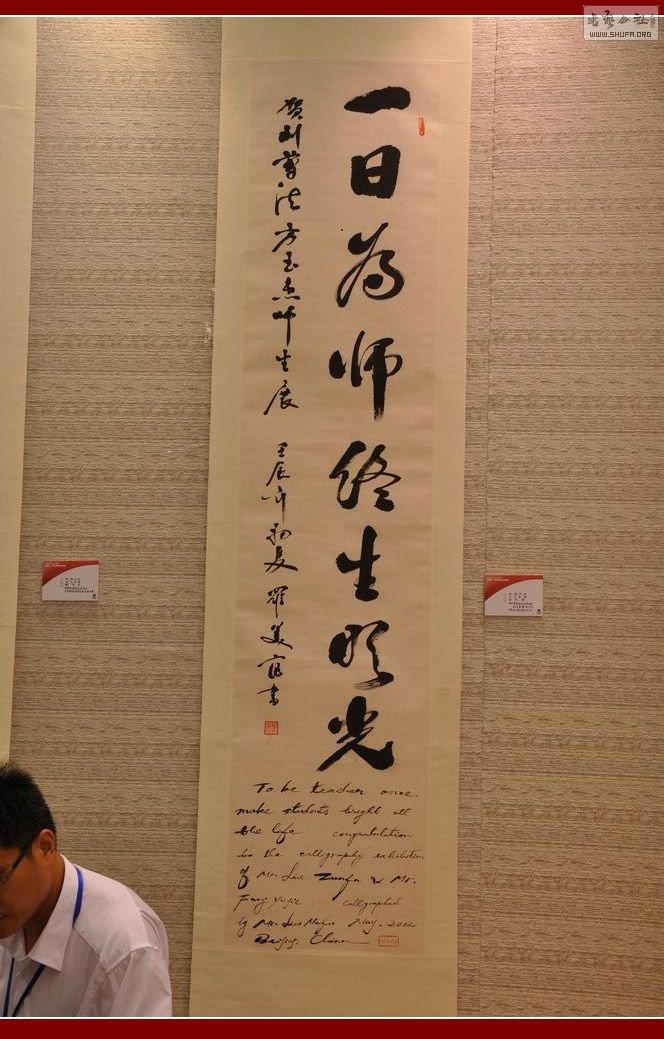 书艺公社
WWW.SHUFA.ORG
一日为师终生明光
贺刘尊法方玉杰师生展 壬辰年初夏 羅美富书
To be teacher once.
make students bright all
the life congratulation
to the calligraphy exhibition
of Mr. Liu Zunfa & Mr.
Fang Yujie. calligraphed
by Mr. Luo Meifu May. 2012
Beijing. China